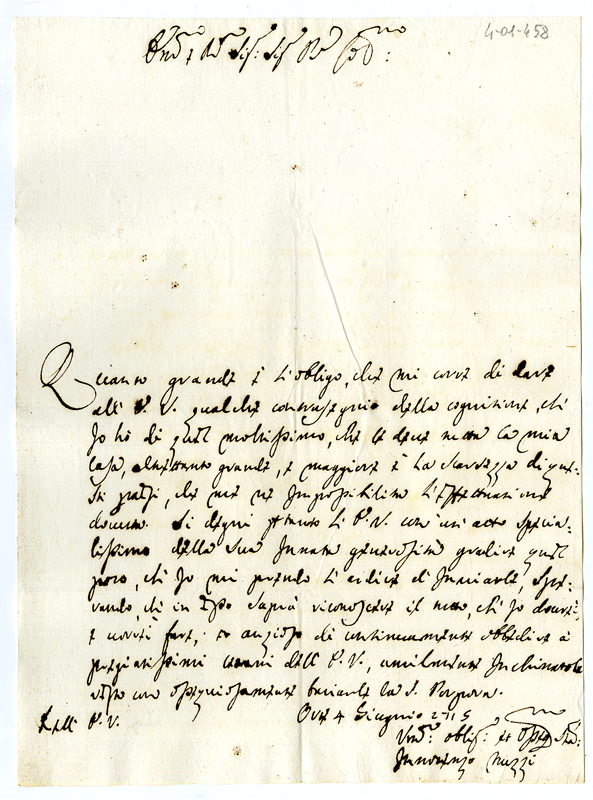 4-01-458
Quanto grande è l'obligo, che mi corre di dare
all' E. V. qualche contrasegnio della cognitione, ch'
Io hò di quel moltissimo, che le deve tutta la mia
Casa, altrettanto grande, e maggiore è la scarsezza di que-
sti paesi, che me ne impossibilita l'effettuatione
dovuta. Si degni pertanto l'E. V. con un' atto specia-
lissimo della sua innata generosità gradire quel
poco, ch' Io mi prendo l'ardire d' Inviarle, spe-
rando, ch' in esso saprà riconoscere il molto, ch' Io dovrei,
e vorrei fare, et ansioso di continuamente obbedire a
pregiatissimi cenni dell' E. V., umilmente Inchinatole
resto con ossequiosamente baciarle la S. Porpora.
Dell' E. V. 4 Giugnio 1715
Innocenzo Nuzzi